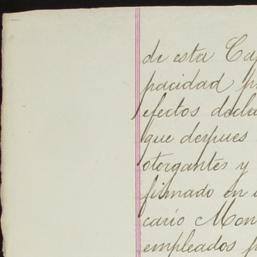 de esta Ca
pacidad p
efectos decla
que despues
otorgantes y
firmado en
cario Mon
empleados p